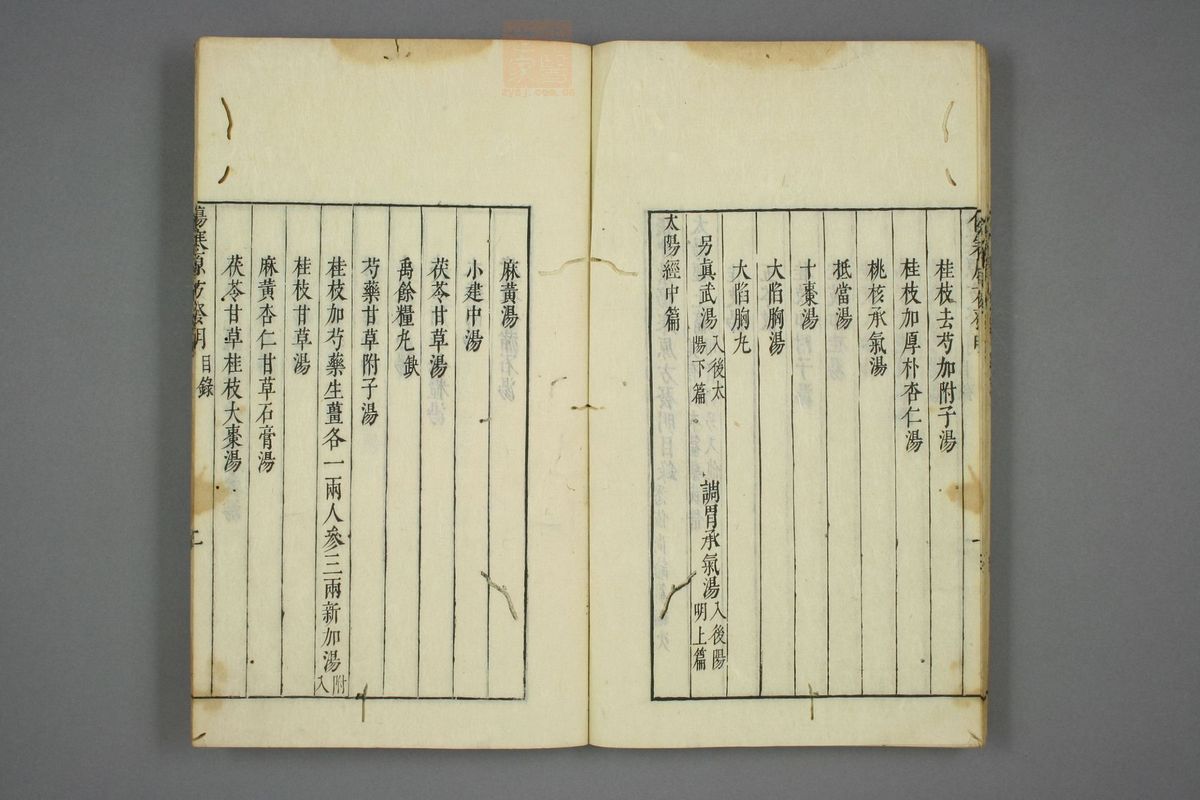 桂枝去芍加附子湯
桂枝加厚朴杏仁湯
桃核承氣湯
抵當湯
十棗湯
大陷胸湯
大陷胸丸
另眞武湯入後太陽下篇。調胃承氣湯入後陽明上篇
太陽經中篇
麻黃湯
小建中湯
茯苓甘草湯
禹餘糧丸缺
芍藥甘草附子湯
桂枝加芍藥生薑各一兩人參三兩新加湯附入
桂枝甘草湯
麻黃杏仁甘草石膏湯
茯苓甘草桂枝大棗湯
傷寒源方發明 目錄 二